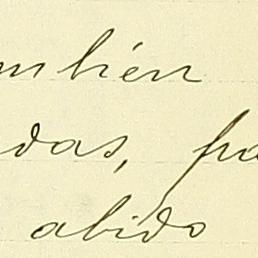 mbién
das, pa
abido